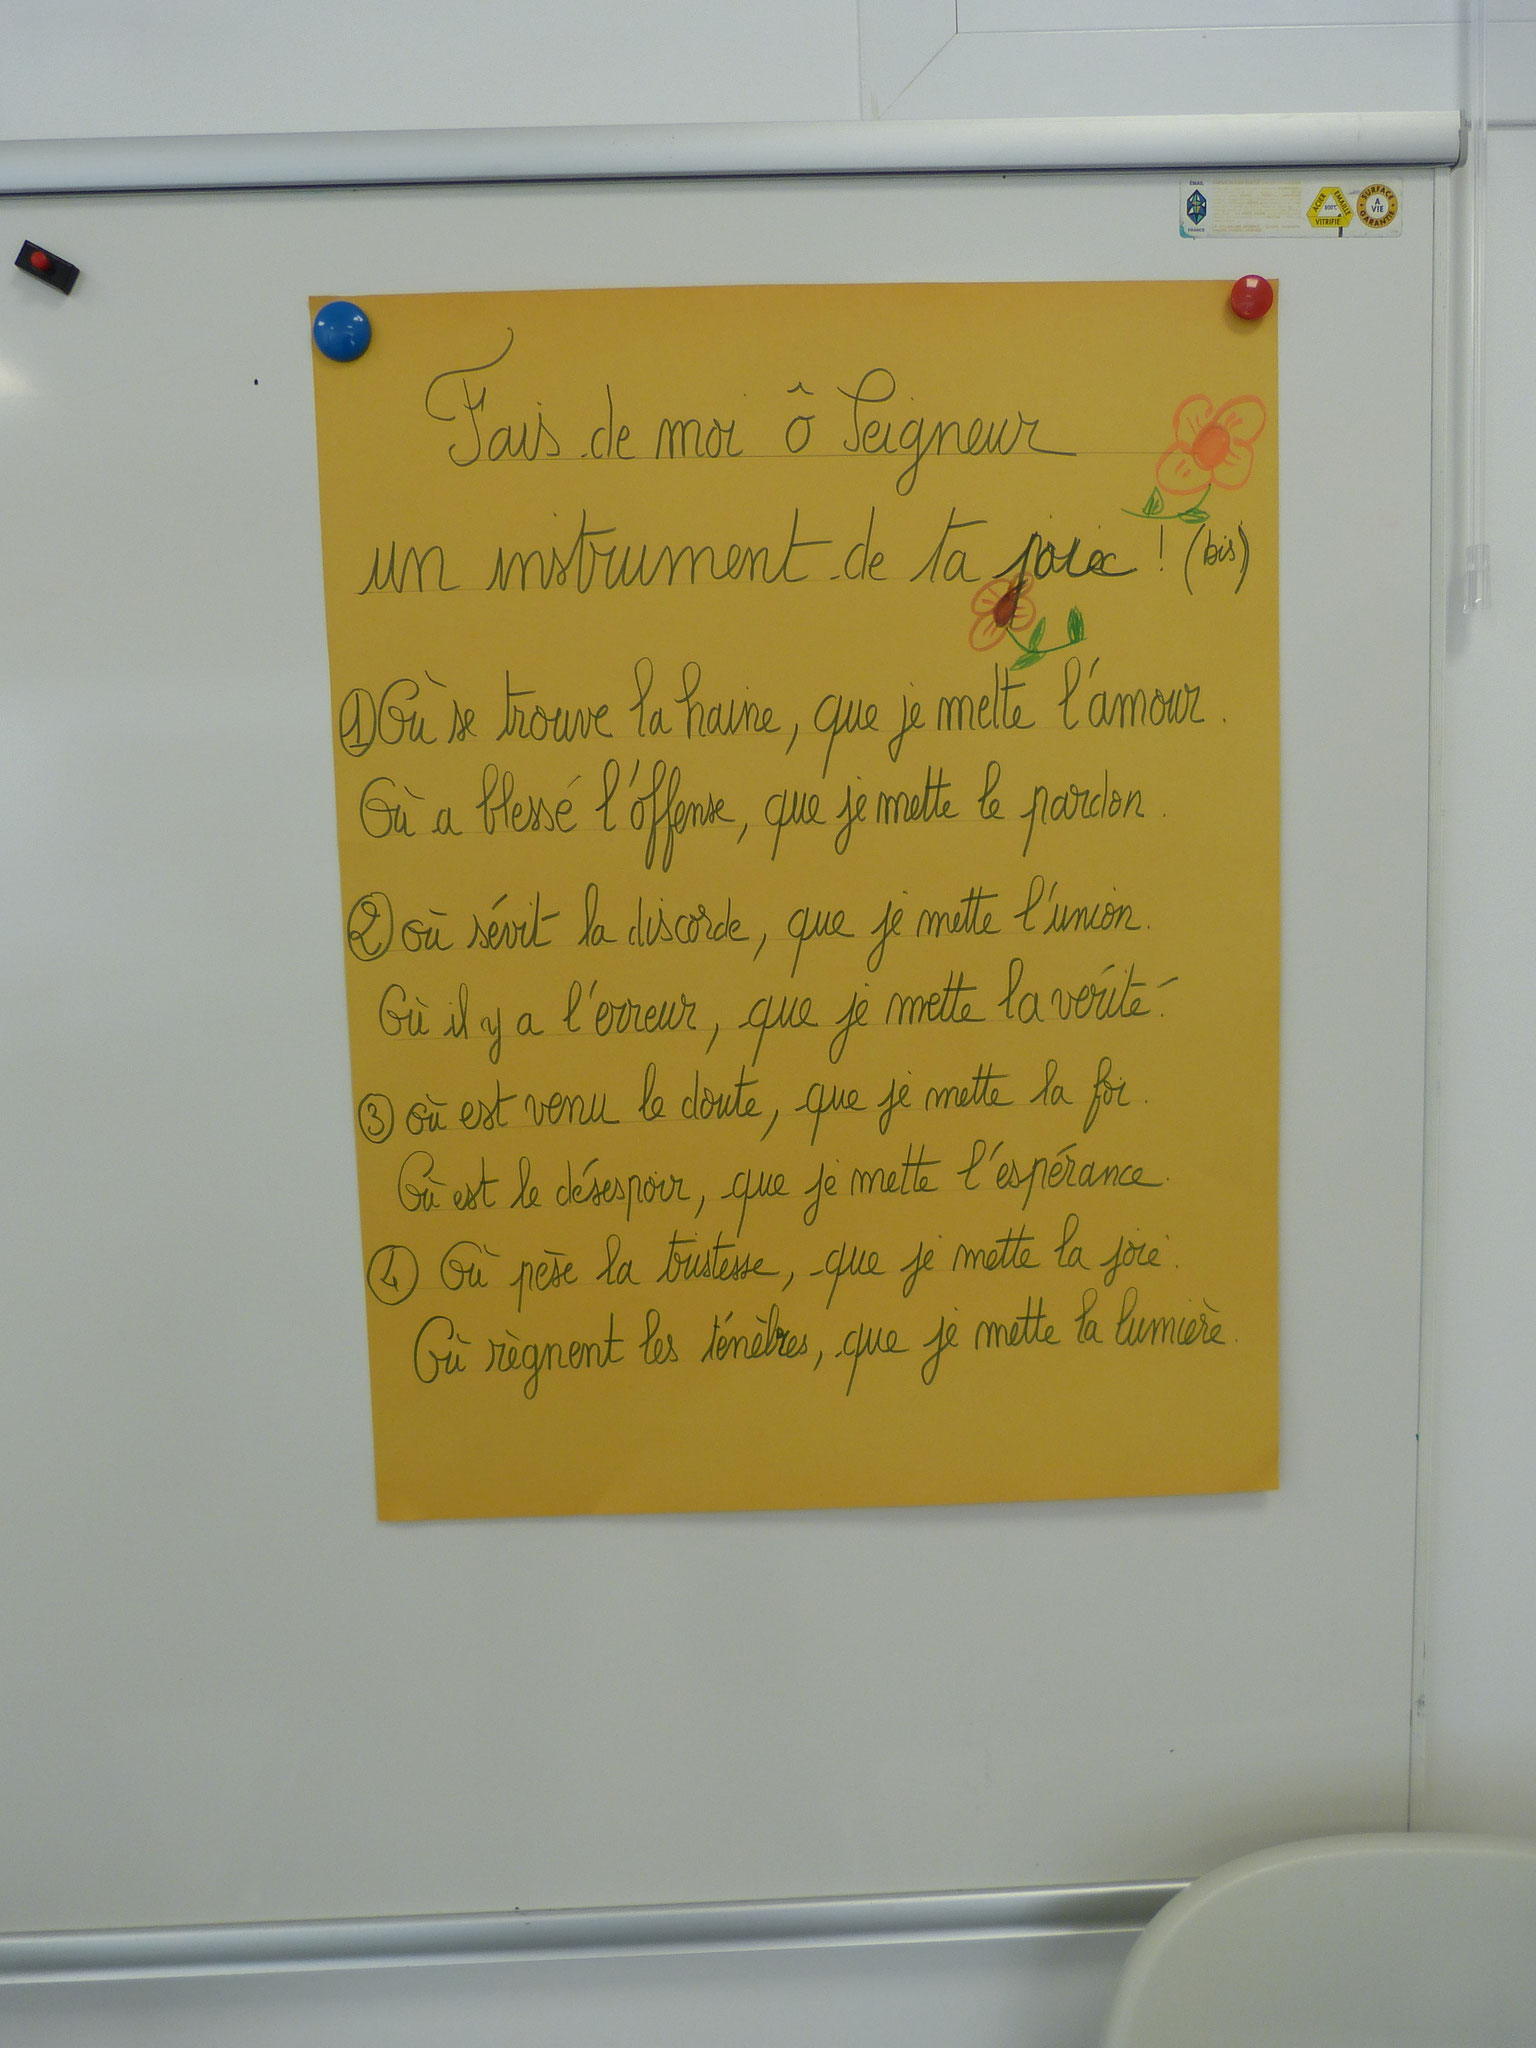 EMAIL
FRANCE
ACIER EMAILLE
800°C
VITRIFIE
SURFACE
A
VIE
GARANTIE
Fais de moi ô Seigneur
un instrument de ta ! (bis)
① Où se trouve la haine, que je mette l'amour.
Où a blessé l'offense, que je mette le pardon.
② où sévit la discorde, que je mette l'union.
Où il y a l'erreur, que je mette la vérité.
③ où est venu le doute, que je mette la foi.
Où est le désespoir, que je mette l'espérance.
④ Où pèse la tristesse, que je mette la joie.
Où règnent les ténèbres, que je mette la lumière.